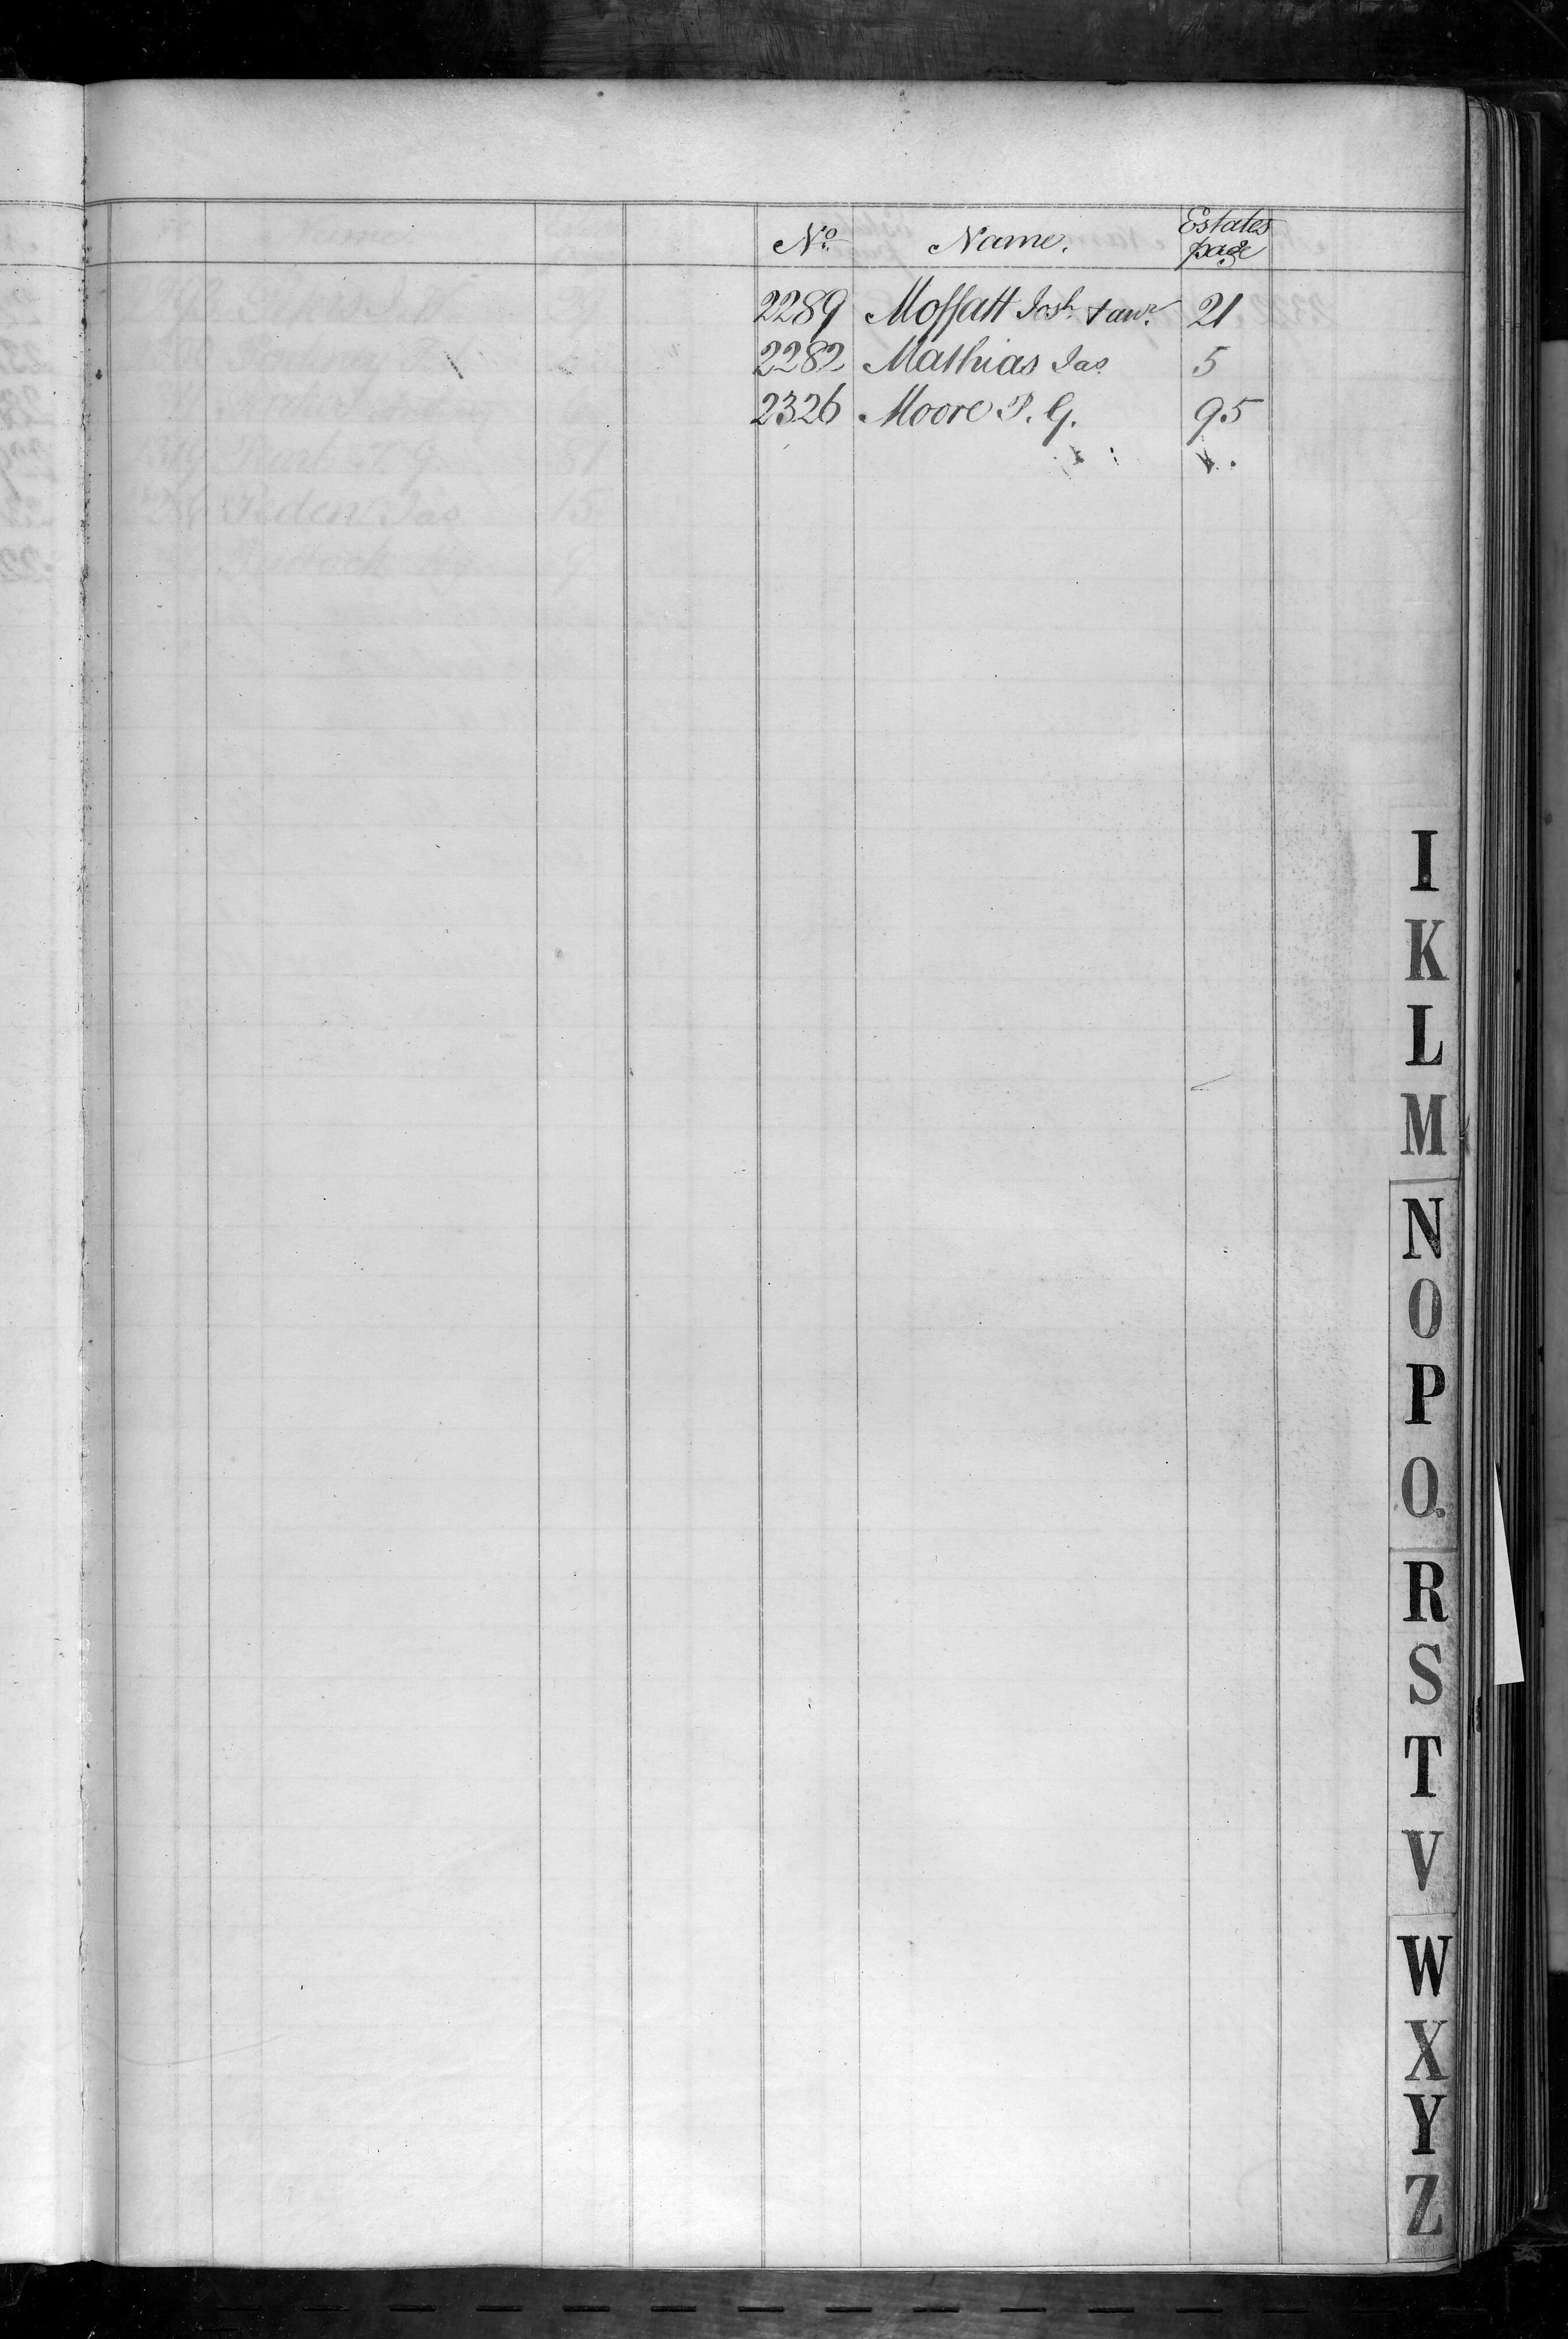 No. Name. Estates page
2289 Moffatt Josh & anr. 21
2282 Mathias Jas 5
2326 Moore P. G. 95
I
K
L
M
N
O
P
Q
R
S
T
V
W
X
Y
Z